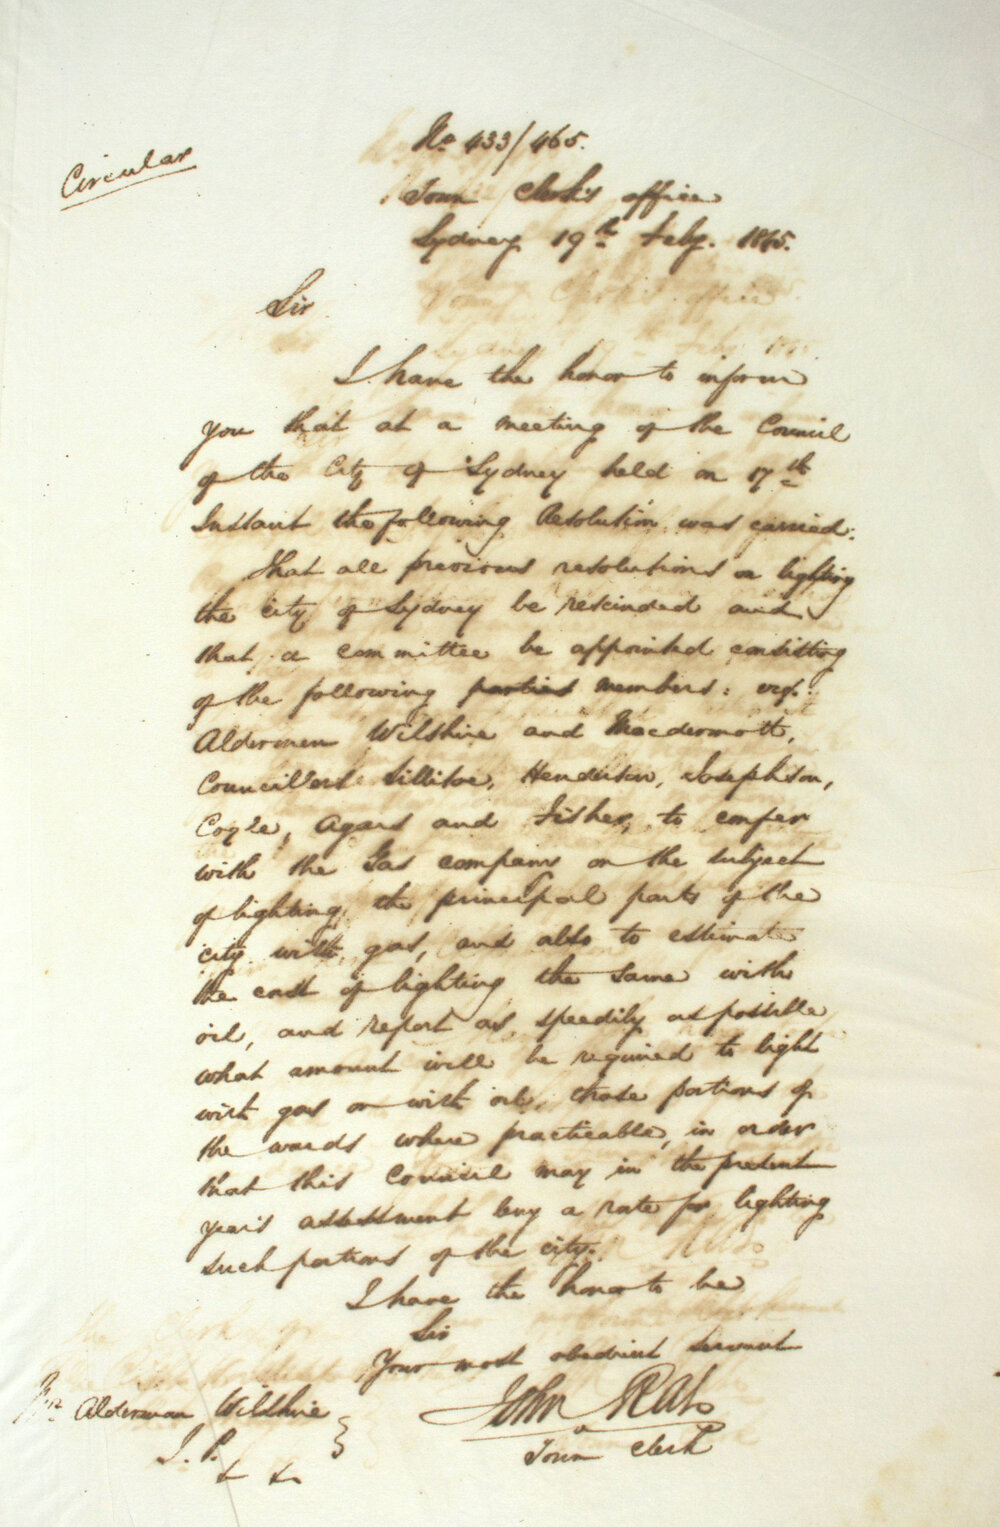 Circular
No 433/465.
Town Clerk's office
Sydney 19th Feby. 1845.
Sir
I have the honor to inform
you that at a meeting of the Council
of the City of Sydney held on 17th
Instant the following Resolution was carried:
That all previous resolutions on lighting
the city of Sydney be rescinded and
that a committee be appointed consisting
of the following parties members: viz:
Aldermen Wilshire and Macdermott,
Councillors Sillitoe, Henderson, Josephson,
Coyle, Agars and Fisher, to confer
with the Gas company on the subject
of lighting the principal parts of the
city with gas, and also to estimate
the cost of lighting the same with
oil, and report as speedily as possible
what amount will be required to light
with gas or with oil, those portions of
the wards where practicable, in order
that this Council may in the present
year's assessment levy a rate for lighting
such portions of the city.
I have the honor to be
Sir
Your most obedient servant
John Rae
Town Clerk
Mr Alderman Wilshire
J. P.